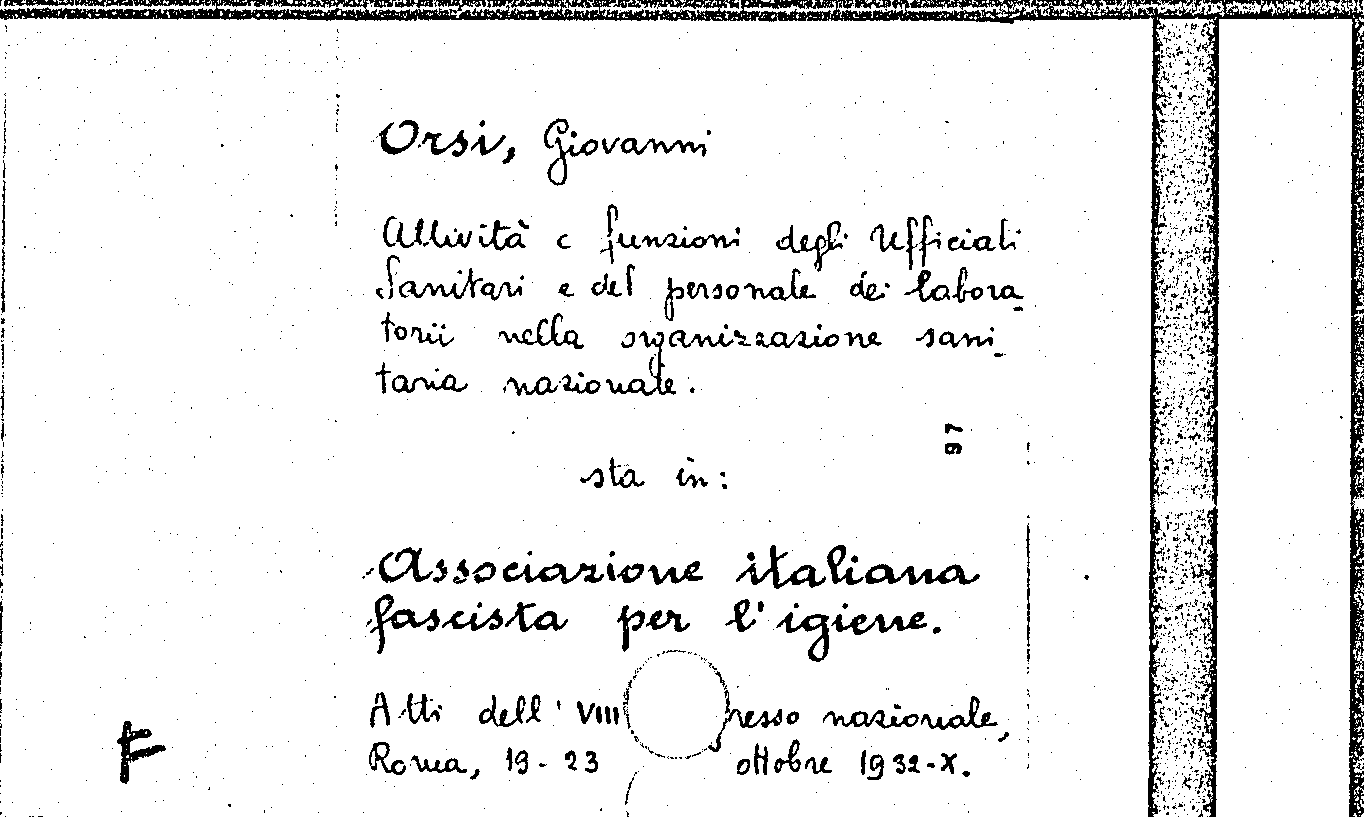 Orsi, Giovanni
Attività e funzioni degli Ufficiali
Sanitari e del personale dei labora-
torii nella organizzazione sani-
taria nazionale.
97
sta in:
Associazione italiana
fascista per l'igiene.
Atti dell' VIII resso nazionale,
F
Roma, 19-23 ottobre 1932-X.